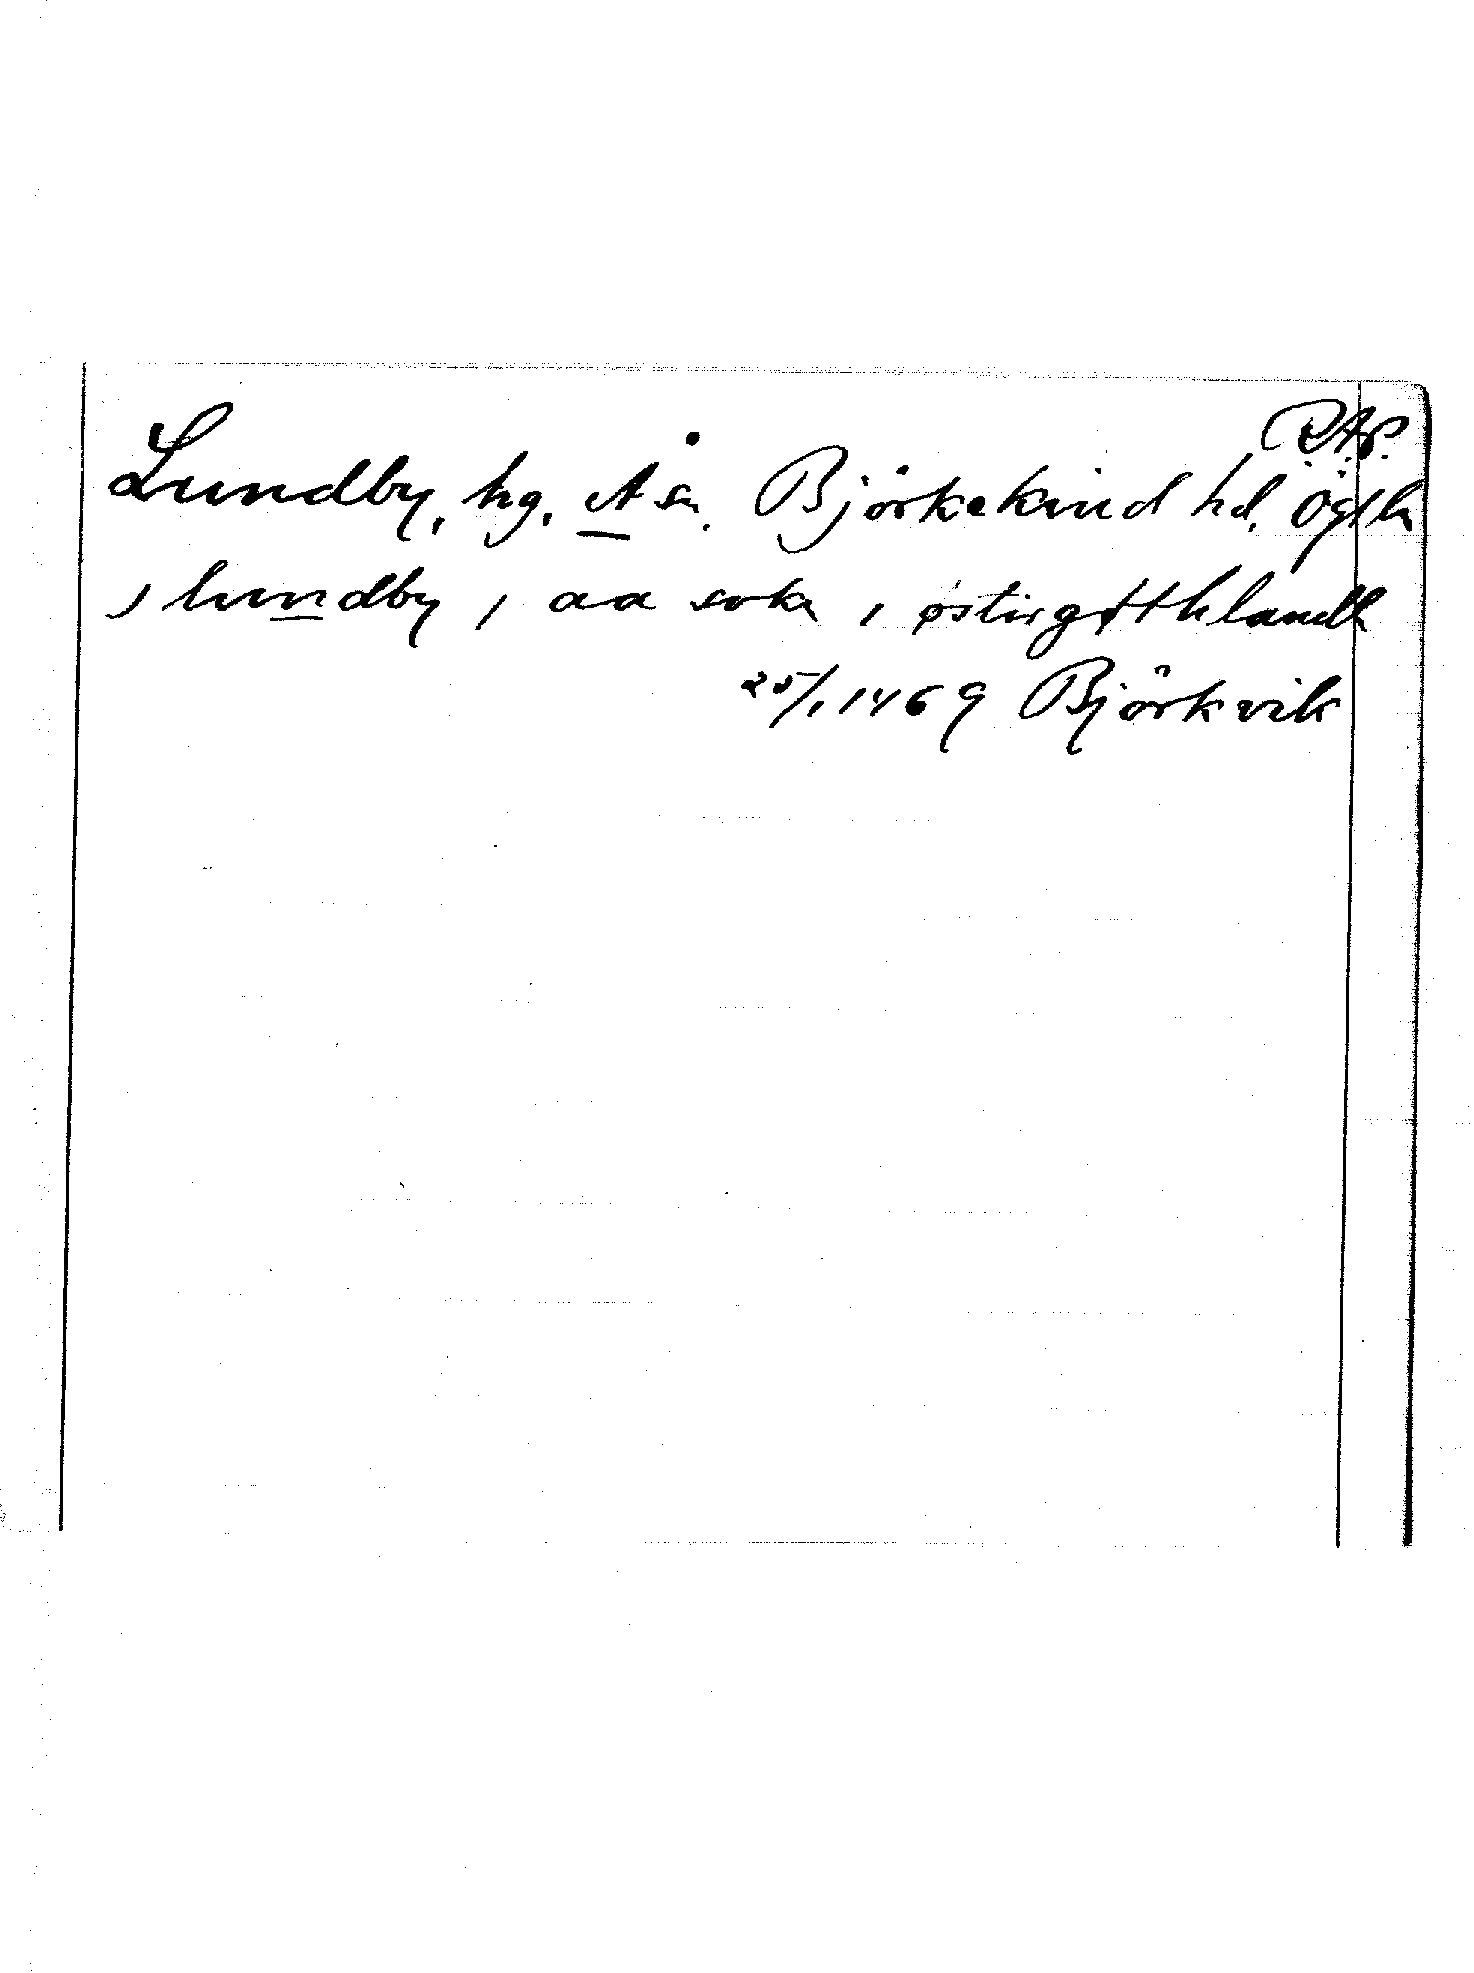 R.A.P.
Lundby, hg. Å sn. Björkekind hd. Ögtl.
j lundby j aa sokn j østirgøtthlandh
25/1 1469 Björkvik